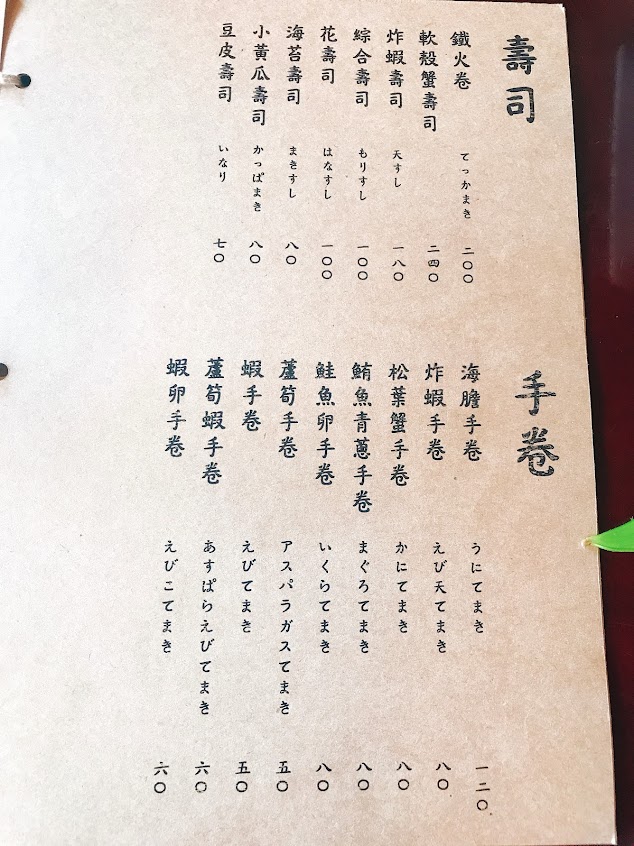 壽司
鐵火卷 てっかまき 二〇〇
軟殼蟹壽司 二四〇
炸蝦壽司 天すし 一八〇
綜合壽司 もりすし 一〇〇
花壽司 はなすし 一〇〇
海苔壽司 まきすし 八〇
小黃瓜壽司 かっぱまき 八〇
豆皮壽司 いなり 七〇
手卷
海膽手卷 うにてまき 一二〇
炸蝦手卷 えび天てまき 八〇
松葉蟹手卷 かにてまき 八〇
鮪魚青蔥手卷 まぐろてまき 八〇
鮭魚卵手卷 いくらてまき 八〇
蘆筍手卷 アスパラガスてまき 五〇
蝦手卷 えびてまき 五〇
蘆筍蝦手卷 あすぱらえびてまき 六〇
蝦卵手卷 えびこてまき 六〇